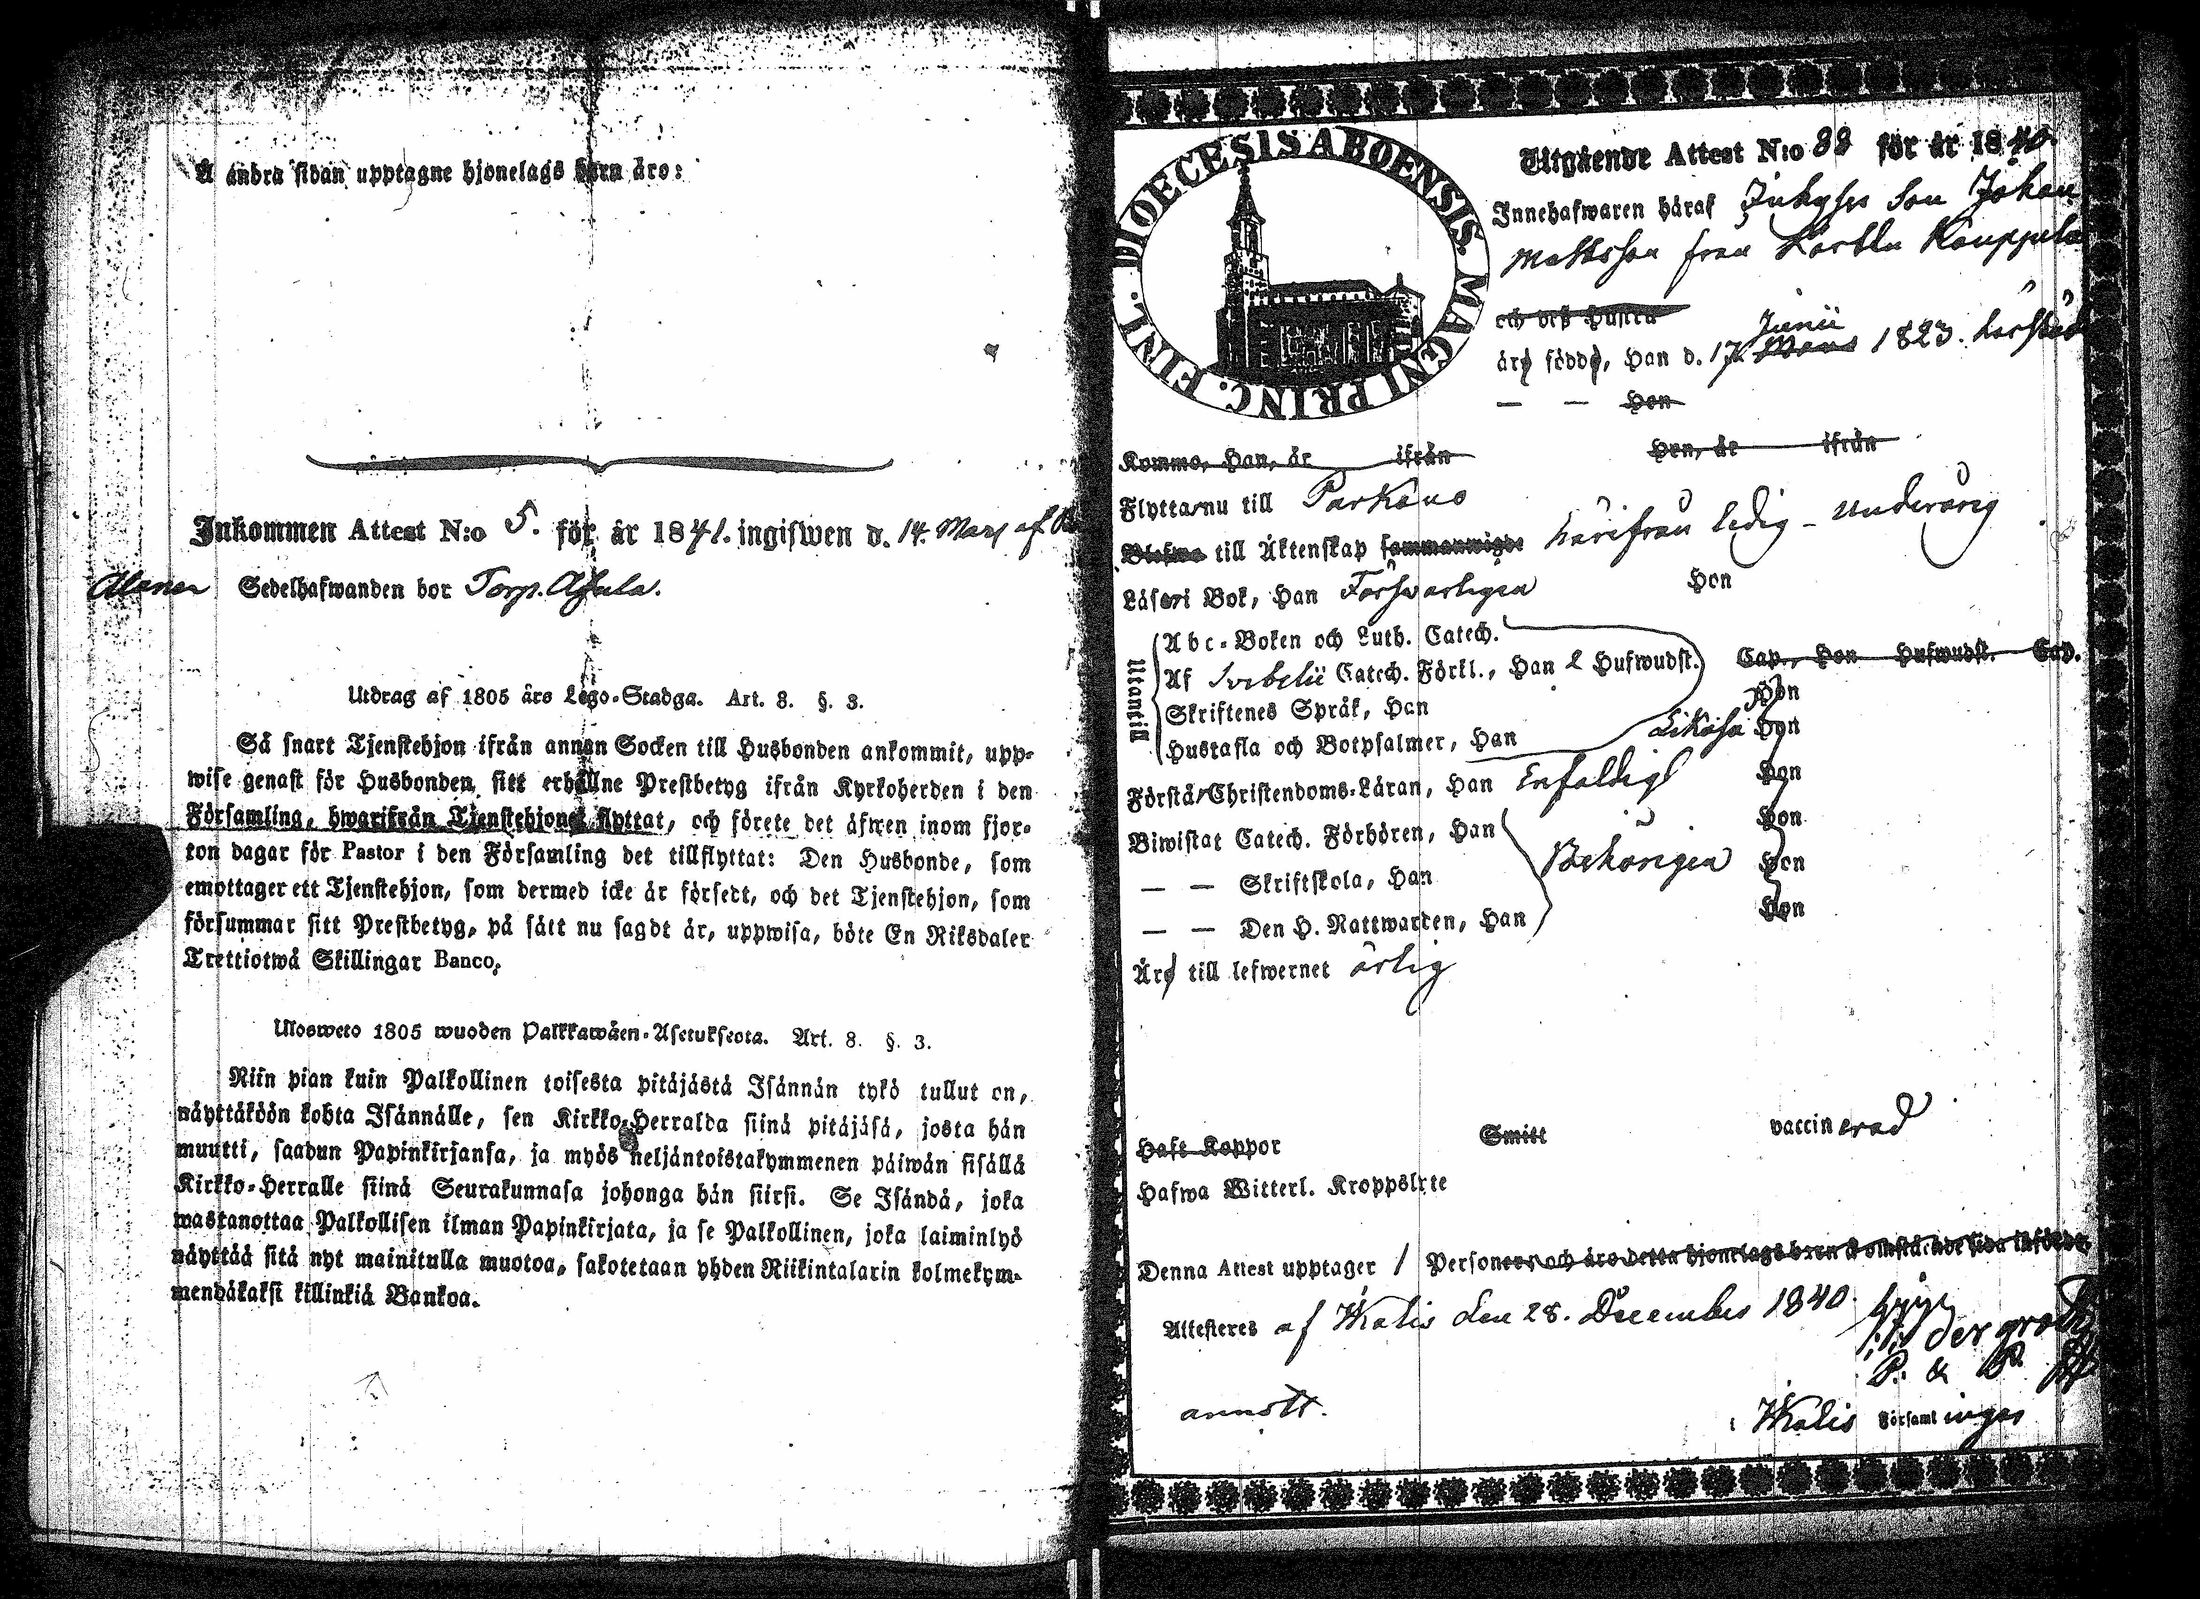 Å andra sidan upptagne hjonelags barn äro:
Inkommen Attest N:o 5. för år 1841. ingifwen d. 14. Mars af
Sedelhafwanden bor Torp.
Utdrag af 1805 års Lego-Stadga. Art. 8. §. 3.
Så snart Tjenstehjon ifrån annan Socken till Husbonden ankommit, upp-
wise genast för Husbonden sitt erhållne Prestbetyg ifrån Kyrkoherden i den
Församling, hwarifrån Tjenstehjonet flyttat, och förete det äfwen inom fjor-
ton dagar för Pastor i den Församling det tillflyttat: Den Husbonde, som
emottager ett Tjenstehjon, som dermed icke är försedt, och det Tjenstehjon, som
försummar sitt Prestbetyg, på sätt nu sagdt är, uppwisa, böte En Riksdaler
Trettiotwå Skillingar Banco.
Ulosweto 1805 wuoden Palkkawäen-Asetuksesta. Art. 8. §. 3.
Niin pian kuin Palkollinen toisesta pitäjästä Isännän tykö tullut on,
näyttäköön kohta Isännälle, sen Kirkko-Herralda siinä pitäjäsä, josta hän
muutti, saadun Papinkirjansa, ja myös neljäntoistakymmenen päiwän sisällä
Kirkko-Herralle siinä Seurakunnasa johonga hän siirsi. Se Isändä, joka
wastanottaa Palkollisen ilman Papinkirjata, ja se Palkollinen, joka laiminlyö
näyttää sitä nyt mainitulla muotoa, sakotetaan yhden Riikintalarin kolmekym-
mendäkaksi killinkiä Bankoa.
DIOECESIS ABOENSIS. MAGNI PRINC. FINL.
Utgående Attest N:o 88 för år 1840.
Innehafwaren häraf Inhyses Son Johan
Mattsson från Kauppila
och dess Hustru
äro födde, Han d. 17. Mars Junii 1823.
— — Hon
Komne, Han, år ifrån Hon, år ifrån
Flytta nu till Parkano
Blefwo till Äktenskap sammanwigde härifrån ledig - underårig
Läser i Bok, Han Försvarligen Hon
Utantill
Abc-Boken och Luth. Catech.
Af Svebelii Catech. Förkl., Han 2 Hufwudst. Cap., Hon Hufwudst. Cap.
Skriftenes Språk, Han Hon
Hustafla och Botpsalmer, Han Likaså Hon
Förstå Christendoms-Läran, Han Enfaldigt Hon
Biwistat Catech. Förhören, Han Hon
— — Skriftskola, Han Behörigen Hon
— — Den H. Nattwarden, Han Hon
Äro till lefwernet ärlig
Haft Koppor Smitt vaccinerad
Hafwa Witterl. Kroppslyte
Denna Attest upptager 1 Personer och äro detta hjonelags barn å omstående sida införde.
Attesteres af Ikalis den 28. December 1840.
Ikalis Församlingar